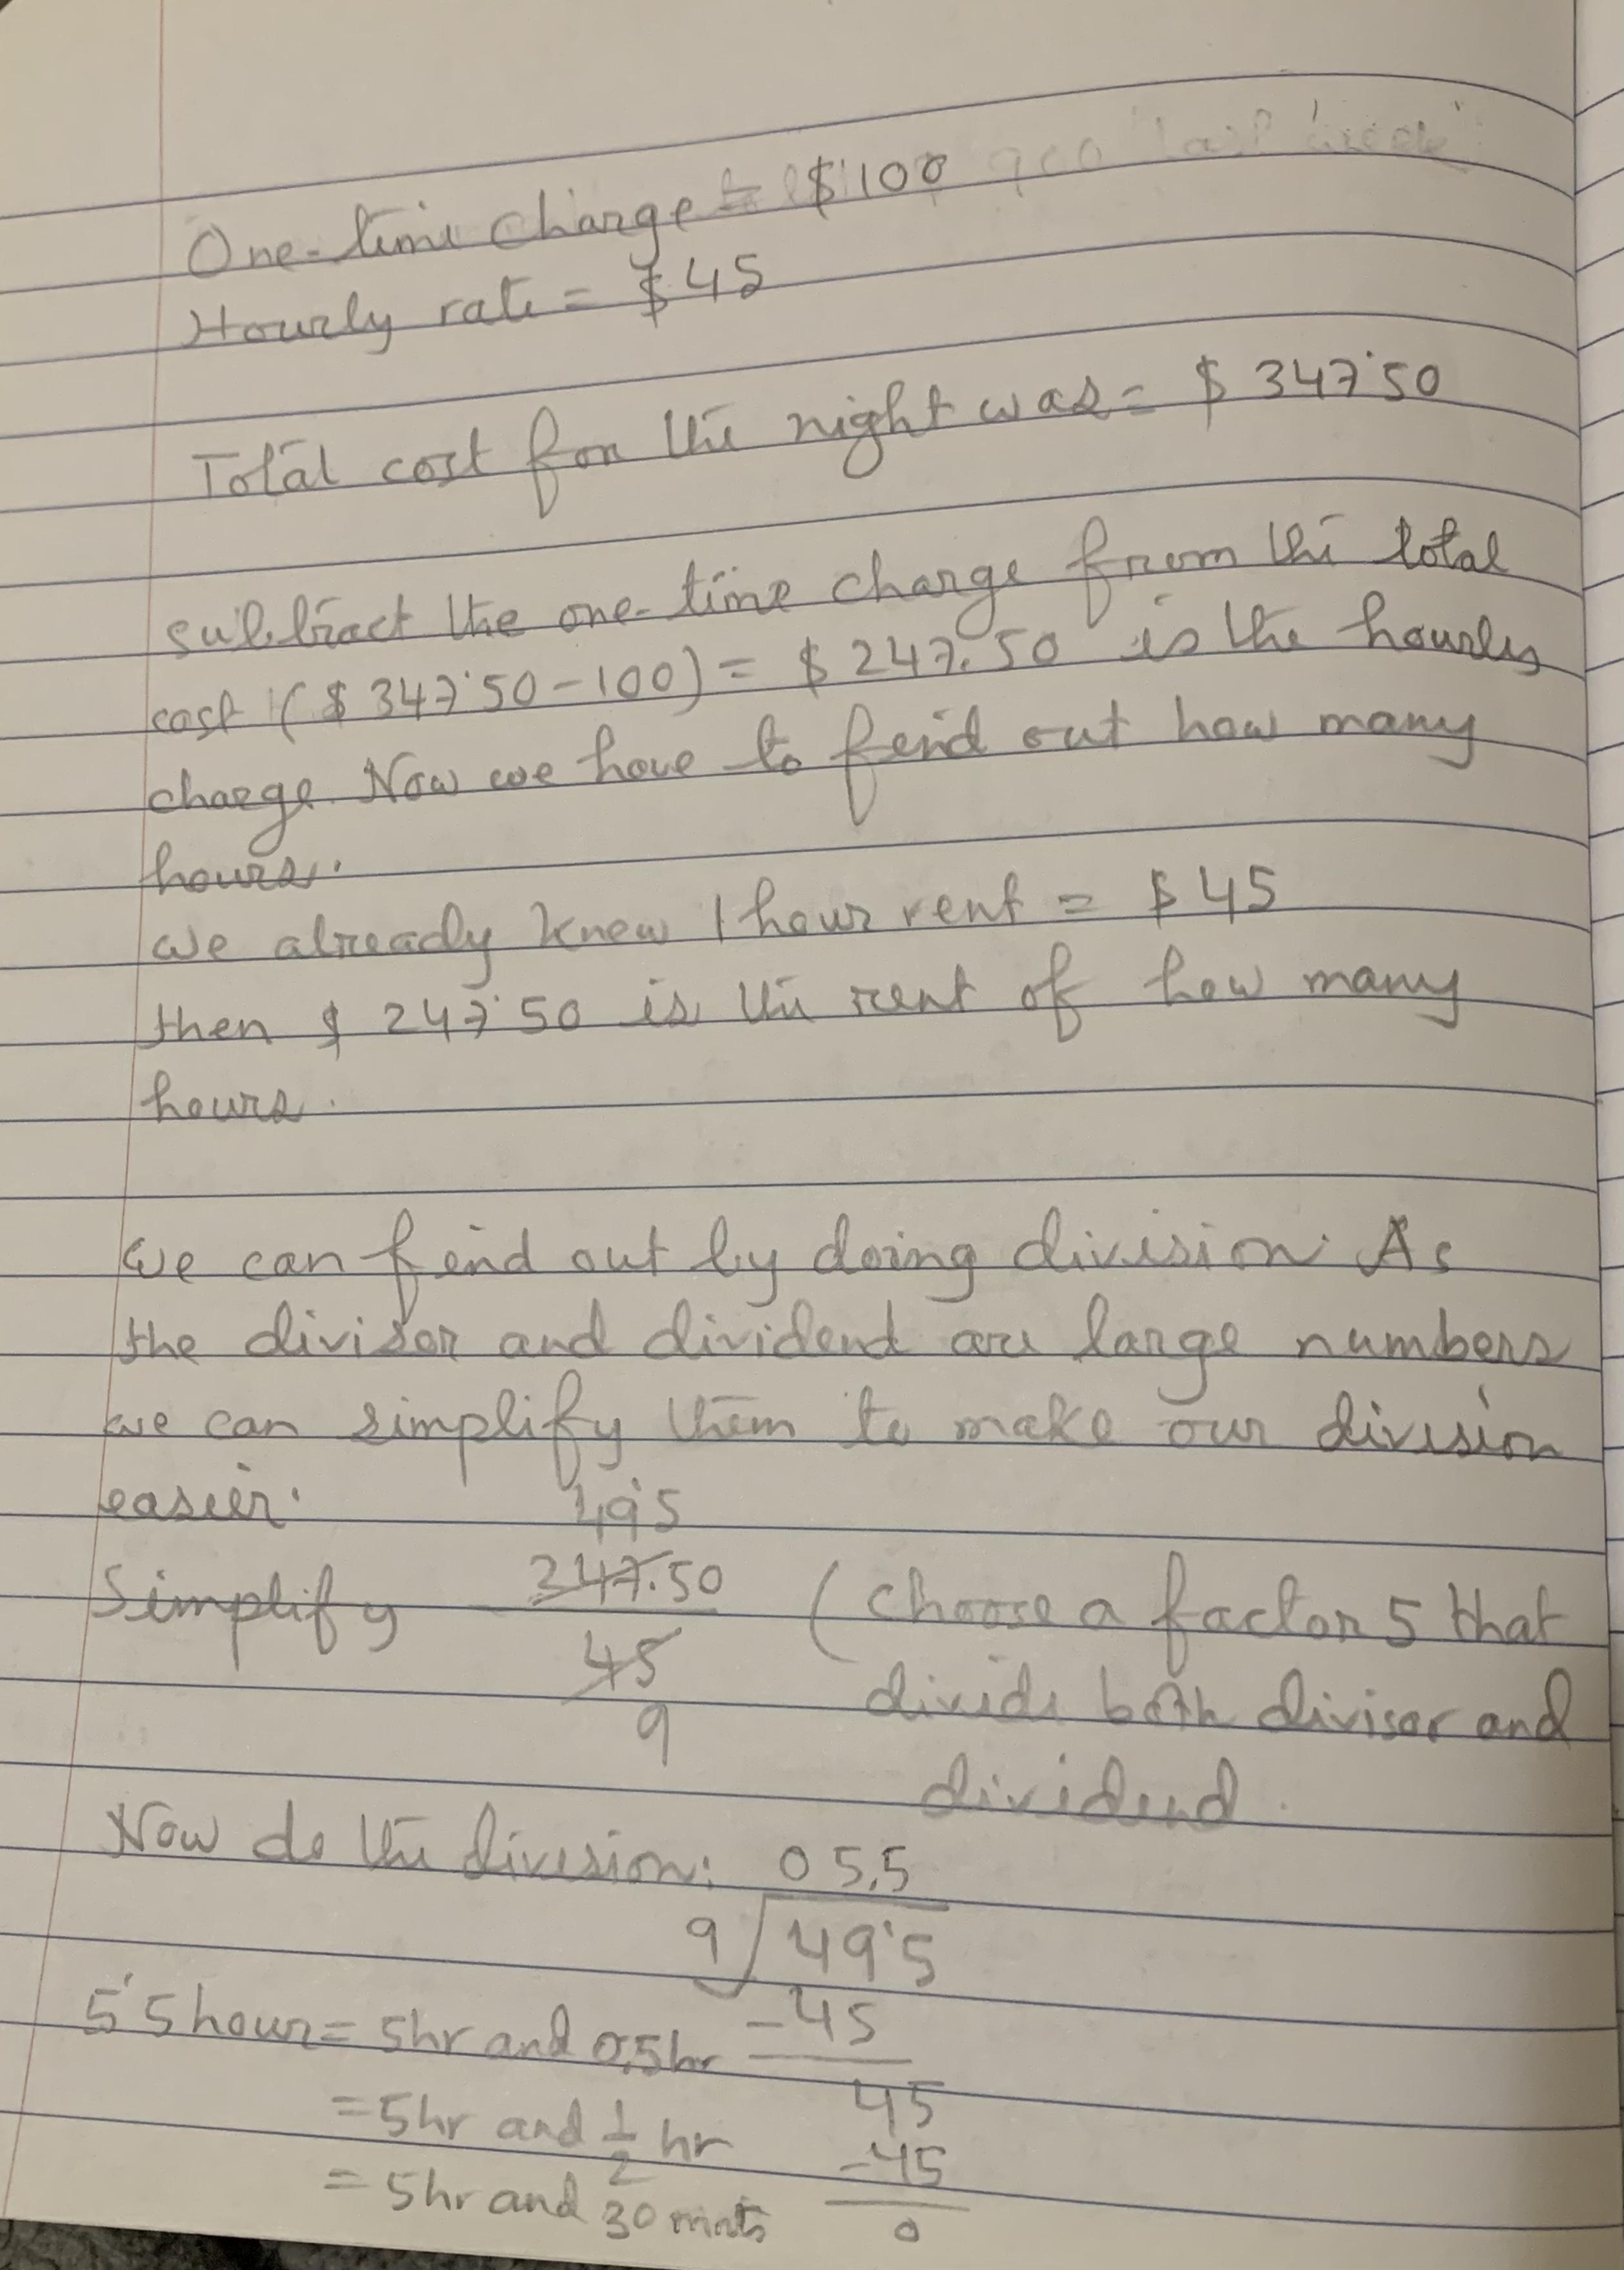 One-time charge = $100
Hourly rate = $45
Total cost for the night was = $347.50
subtract the one-time charge from the total
cost ($347.50-100) = $247.50 is the hourly
charge. Now we have to find out how many
hours.
we already knew 1 hour rent = $45
then $247.50 is the rent of how many
hours.
we can find out by doing division. As
the divisor and dividend are large numbers
we can simplify them to make our division
easier.
49.5
Simplify 247.50 (choose a factor 5 that
45 divide both divisor and
9
dividend.
Now do the division: 05.5
9 49.5
5.5 hour = 5hr and 0.5hr -45
45
= 5hr and 1/2 hr
-45
= 5hr and 30 mnts 0